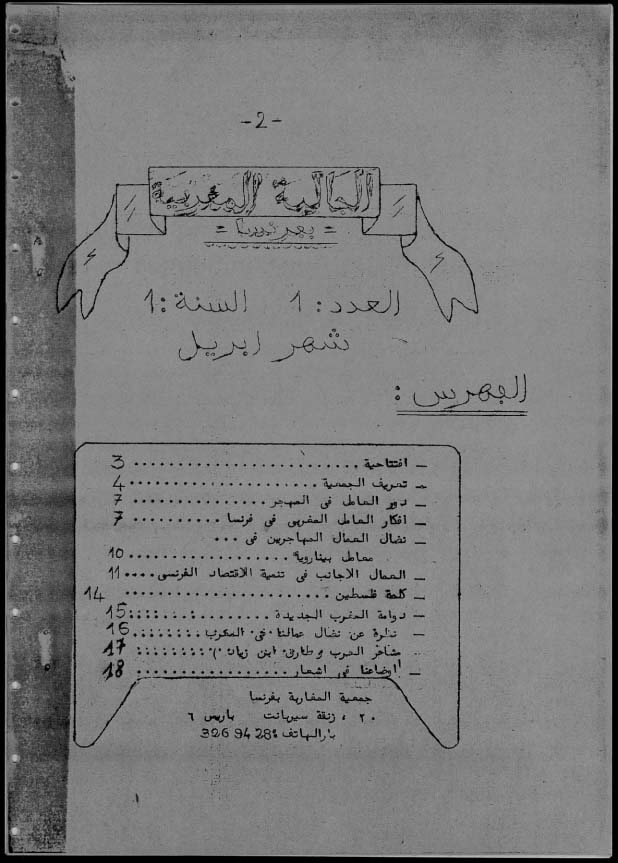 -2-
الجالية المغربية
= بفرنسا =
العدد: 1 السنة: 1
شهر ابريل
الفهرس :
- افتتاحية .......................... 3
- تعريف الجمعية .................... 4
- دور العامل في المهجر ............... 7
- افكار العامل المغربي في فرنسا .......... 7
- نضال العمال المهاجرين في ...
معامل بيناروية .................. 10
- العمال الاجانب في تنمية الاقتصاد الفرنسي.... 11
- كلمة فلسطين .................... 14
- دوامة المغرب الجديدة ............... 15
- نظرة عن نضال عمالنا في المغرب ........ 16
العرب و طارق ابن زياد ........ 17
- اوضاعنا في اشعار ................ 18
جمعية المغاربة بفرنسا
٢٠ ، زنقة باريس ٦
الهاتف : 326 94 28